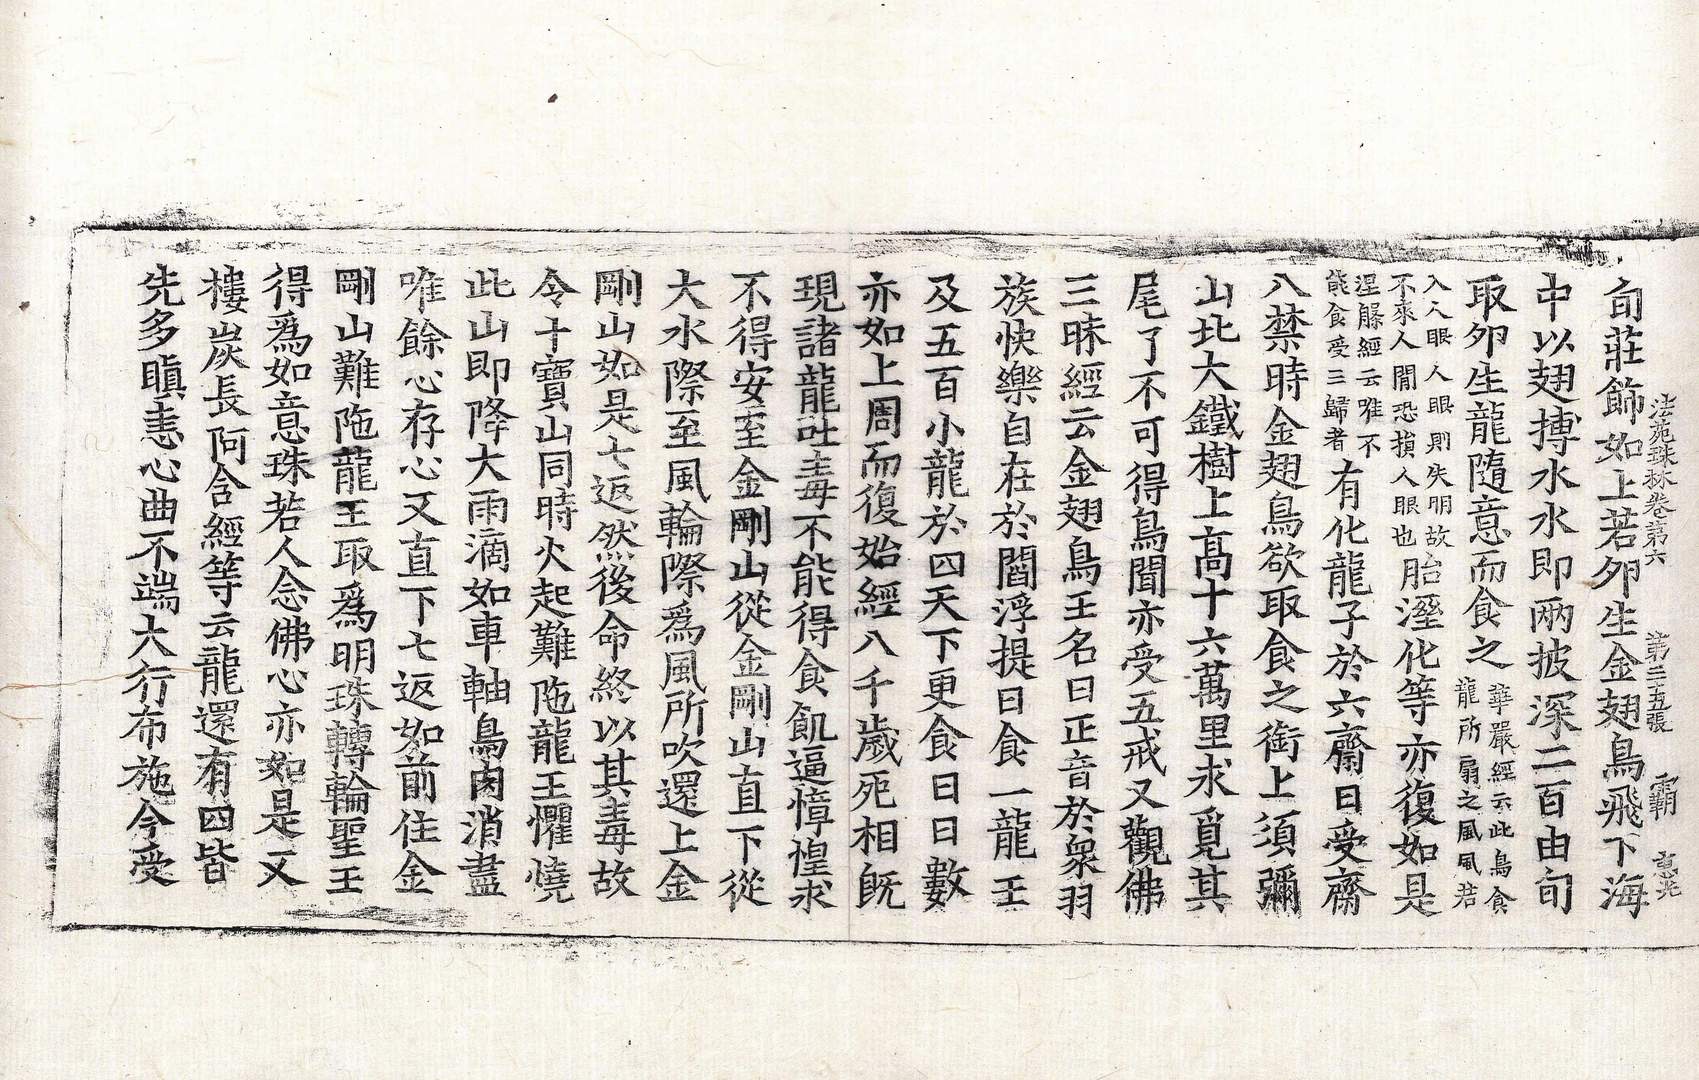 法苑珠林卷第六　第二五張　霸　惠光
旬莊飾如上若夘生金翅鳥飛下海
中以翅搏水水即兩披深二百由旬
取夘生龍隨意而食之
華嚴經云此鳥食
龍所扇之風風若
入人眼人眼則失明故
不來人閒恐損人眼也
胎溼化等亦復如是
涅槃經云唯不
能食受三歸者
有化龍子於六齋日受齋
八禁時金翅鳥欲取食之銜上須彌
山北大鐵樹上高十六萬里求覓其
尾了不可得鳥聞亦受五戒又觀佛
三昧經云金翅鳥王名曰正音於衆羽
族快樂自在於閻浮提日食一龍王
及五百小龍於四天下更食日日數
亦如上周而復始經八千歲死相旣
現諸龍吐毒不能得食飢逼慞惶求
不得安至金剛山從金剛山直下從
大水際至風輪際爲風所吹還上金
剛山如是七返然後命終以其毒故
令十寶山同時火起難陁龍王懼燒
此山即降大雨滴如車軸鳥肉消盡
唯餘心存心又直下七返如前住金
剛山難陁龍王取爲明珠轉輪聖王
得爲如意珠若人念佛心亦如是又
樓炭長阿含經等云龍還有四皆
先多瞋恚心曲不端大行布施今受